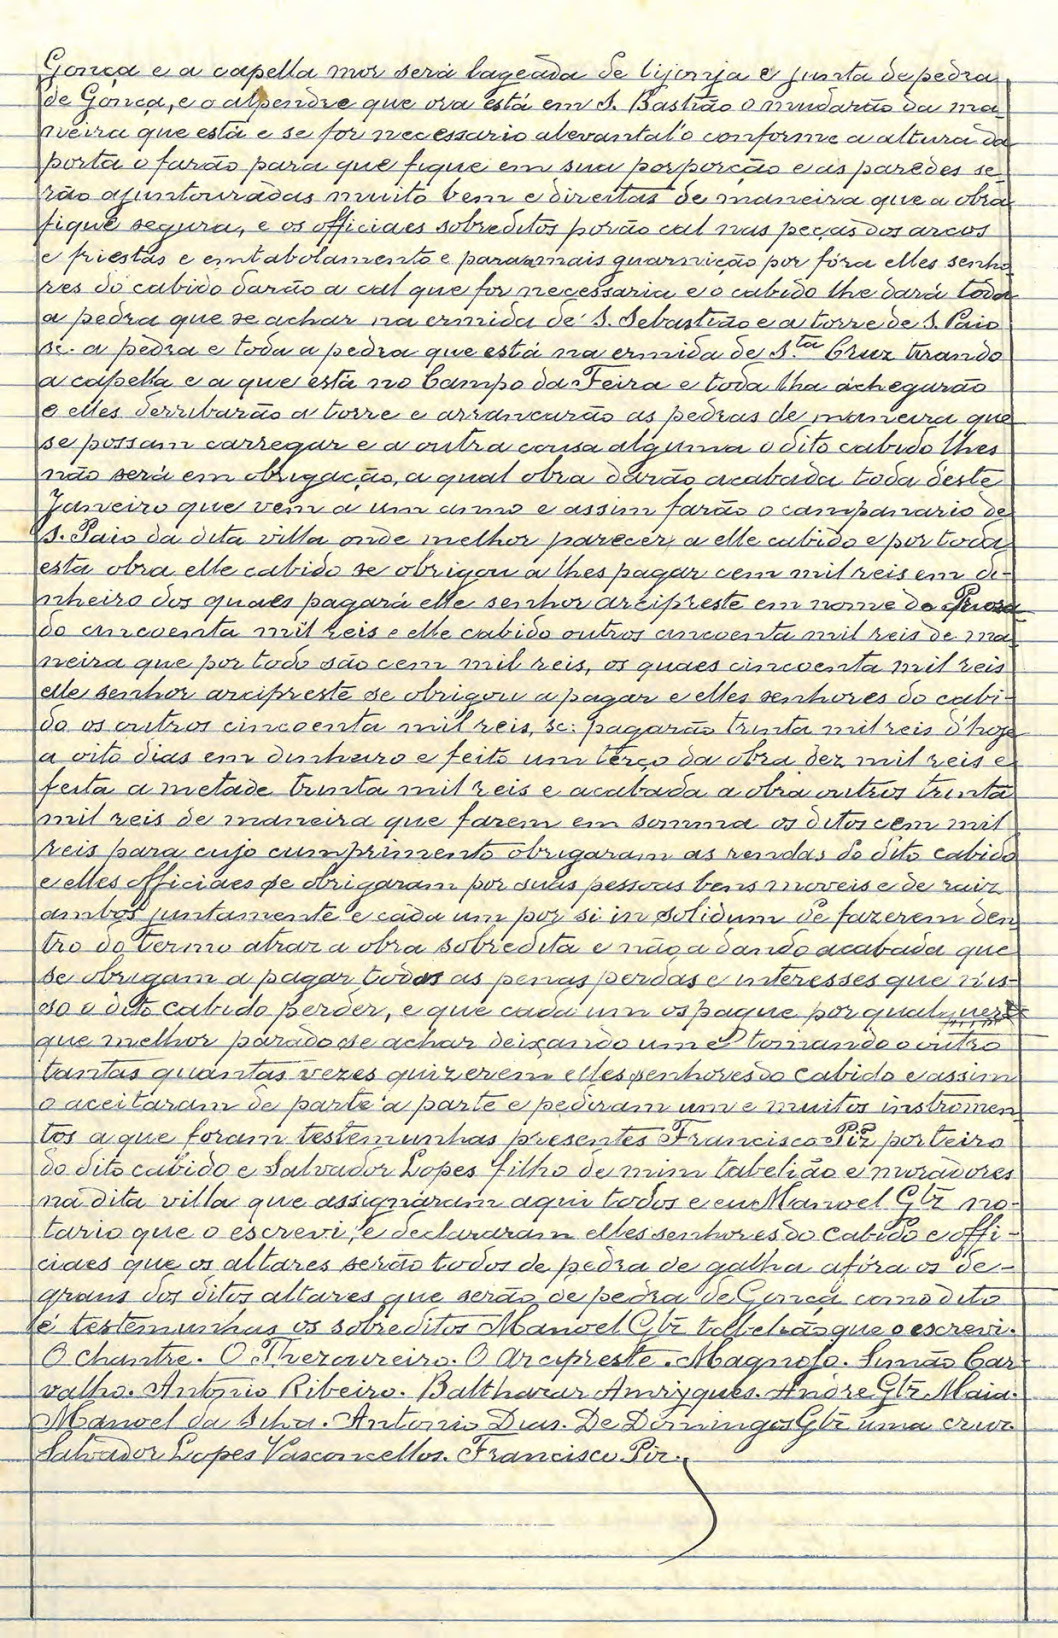 Gonça e a capella mor será lageada de lijonja e junta de pedra
de Gonça, e o alpendre que ora está em S. Bastião o mudarão da ma-
neira que está e se for necessario alevantal'o conforme a altura da
porta o farão para que fique em sua porporção e as paredes se-
rão ajuntouradas muito bem e direitas de maneira que a obra
fique segura, e os officiaes sobreditos porão cal nas peças dos arcos
e friestas e emtabolamento e para mais guarnição por fóra elles senho-
res do cabido darão a cal que for necessaria e o cabido lhe dará toda
a pedra que se achar na ermida de S. Sebastião e a torre de S. Paio
sc. a pedra e toda a pedra que está na ermida de S.ta Cruz tirando
a capella e a que está no Campo da Feira e toda lha achegarão
e elles derribarão a torre e arrancarão as pedras de maneira que
se possam carregar e a outra cousa alguma o dito cabido lhes
não será em obrigação, a qual obra darão acabada toda d'este
Janeiro que vem a um anno e assim farão o campanario de
S. Paio da dita villa onde melhor parecer a elle cabido e por toda
esta obra elle cabido se obrigou a lhes pagar cem mil reis em di-
nheiro dos quaes pagará elle senhor arcipreste em nome do
do cincoenta mil reis e elle cabido outros cincoenta mil reis de ma-
neira que por todo são cem mil reis, os quaes cincoenta mil reis
elle senhor arcipreste se obrigou a pagar e elles senhores do cabi-
do os outros cincoenta mil reis, sc: pagarão trinta mil reis d'hoje
a oito dias em dinheiro e feito um terço da obra dez mil reis e
feita a metade trinta mil reis e acabada a obra outros trinta
mil reis de maneira que farem em somma os ditos cem mil
reis para cujo cumprimento obrigaram as rendas do dito cabido
e elles officiaes se obrigaram por suas pessoas bens moveis e de raiz
ambos juntamente e cada um por si in solidum de fazerem den-
tro do termo atraz a obra sobredita e não a dando acabada que
se obrigam a pagar todas as penas perdas e interesses que nis-
so o dito cabido perder, e que cada um os pague por qualquer
que melhor parado se achar deixando um e tomando o outro
tantas quantas vezes quizerem elles senhores do cabido e assim
o aceitaram de parte a parte e pediram um e muitos instromen-
tos a que foram testemunhas presentes Francisco Piz porteiro
do dito cabido e Salvador Lopes filho de mim tabelião e moradores
na dita villa que assignaram aqui todos e eu Manoel Glz no-
tario que o escrevi, e declararam elles senhores do cabido e offi-
ciaes que os altares serão todos de pedra de galha afóra os de-
graus dos ditos altares que serão de pedra de Gonça como dito
é testemunhas os sobreditos Manoel Glz tabbelião que o escrevi.
O chantre. O Thezoureiro. O Arcipreste. Magnoso. Simão Car-
valho. Antonio Ribeiro. Balthazar Amryques. Andre Glz Maia.
Manoel da Silva. Antonio Dias. De Domingos Glz uma cruz.
Salvador Lopes Vasconcellos. Francisco Piz.